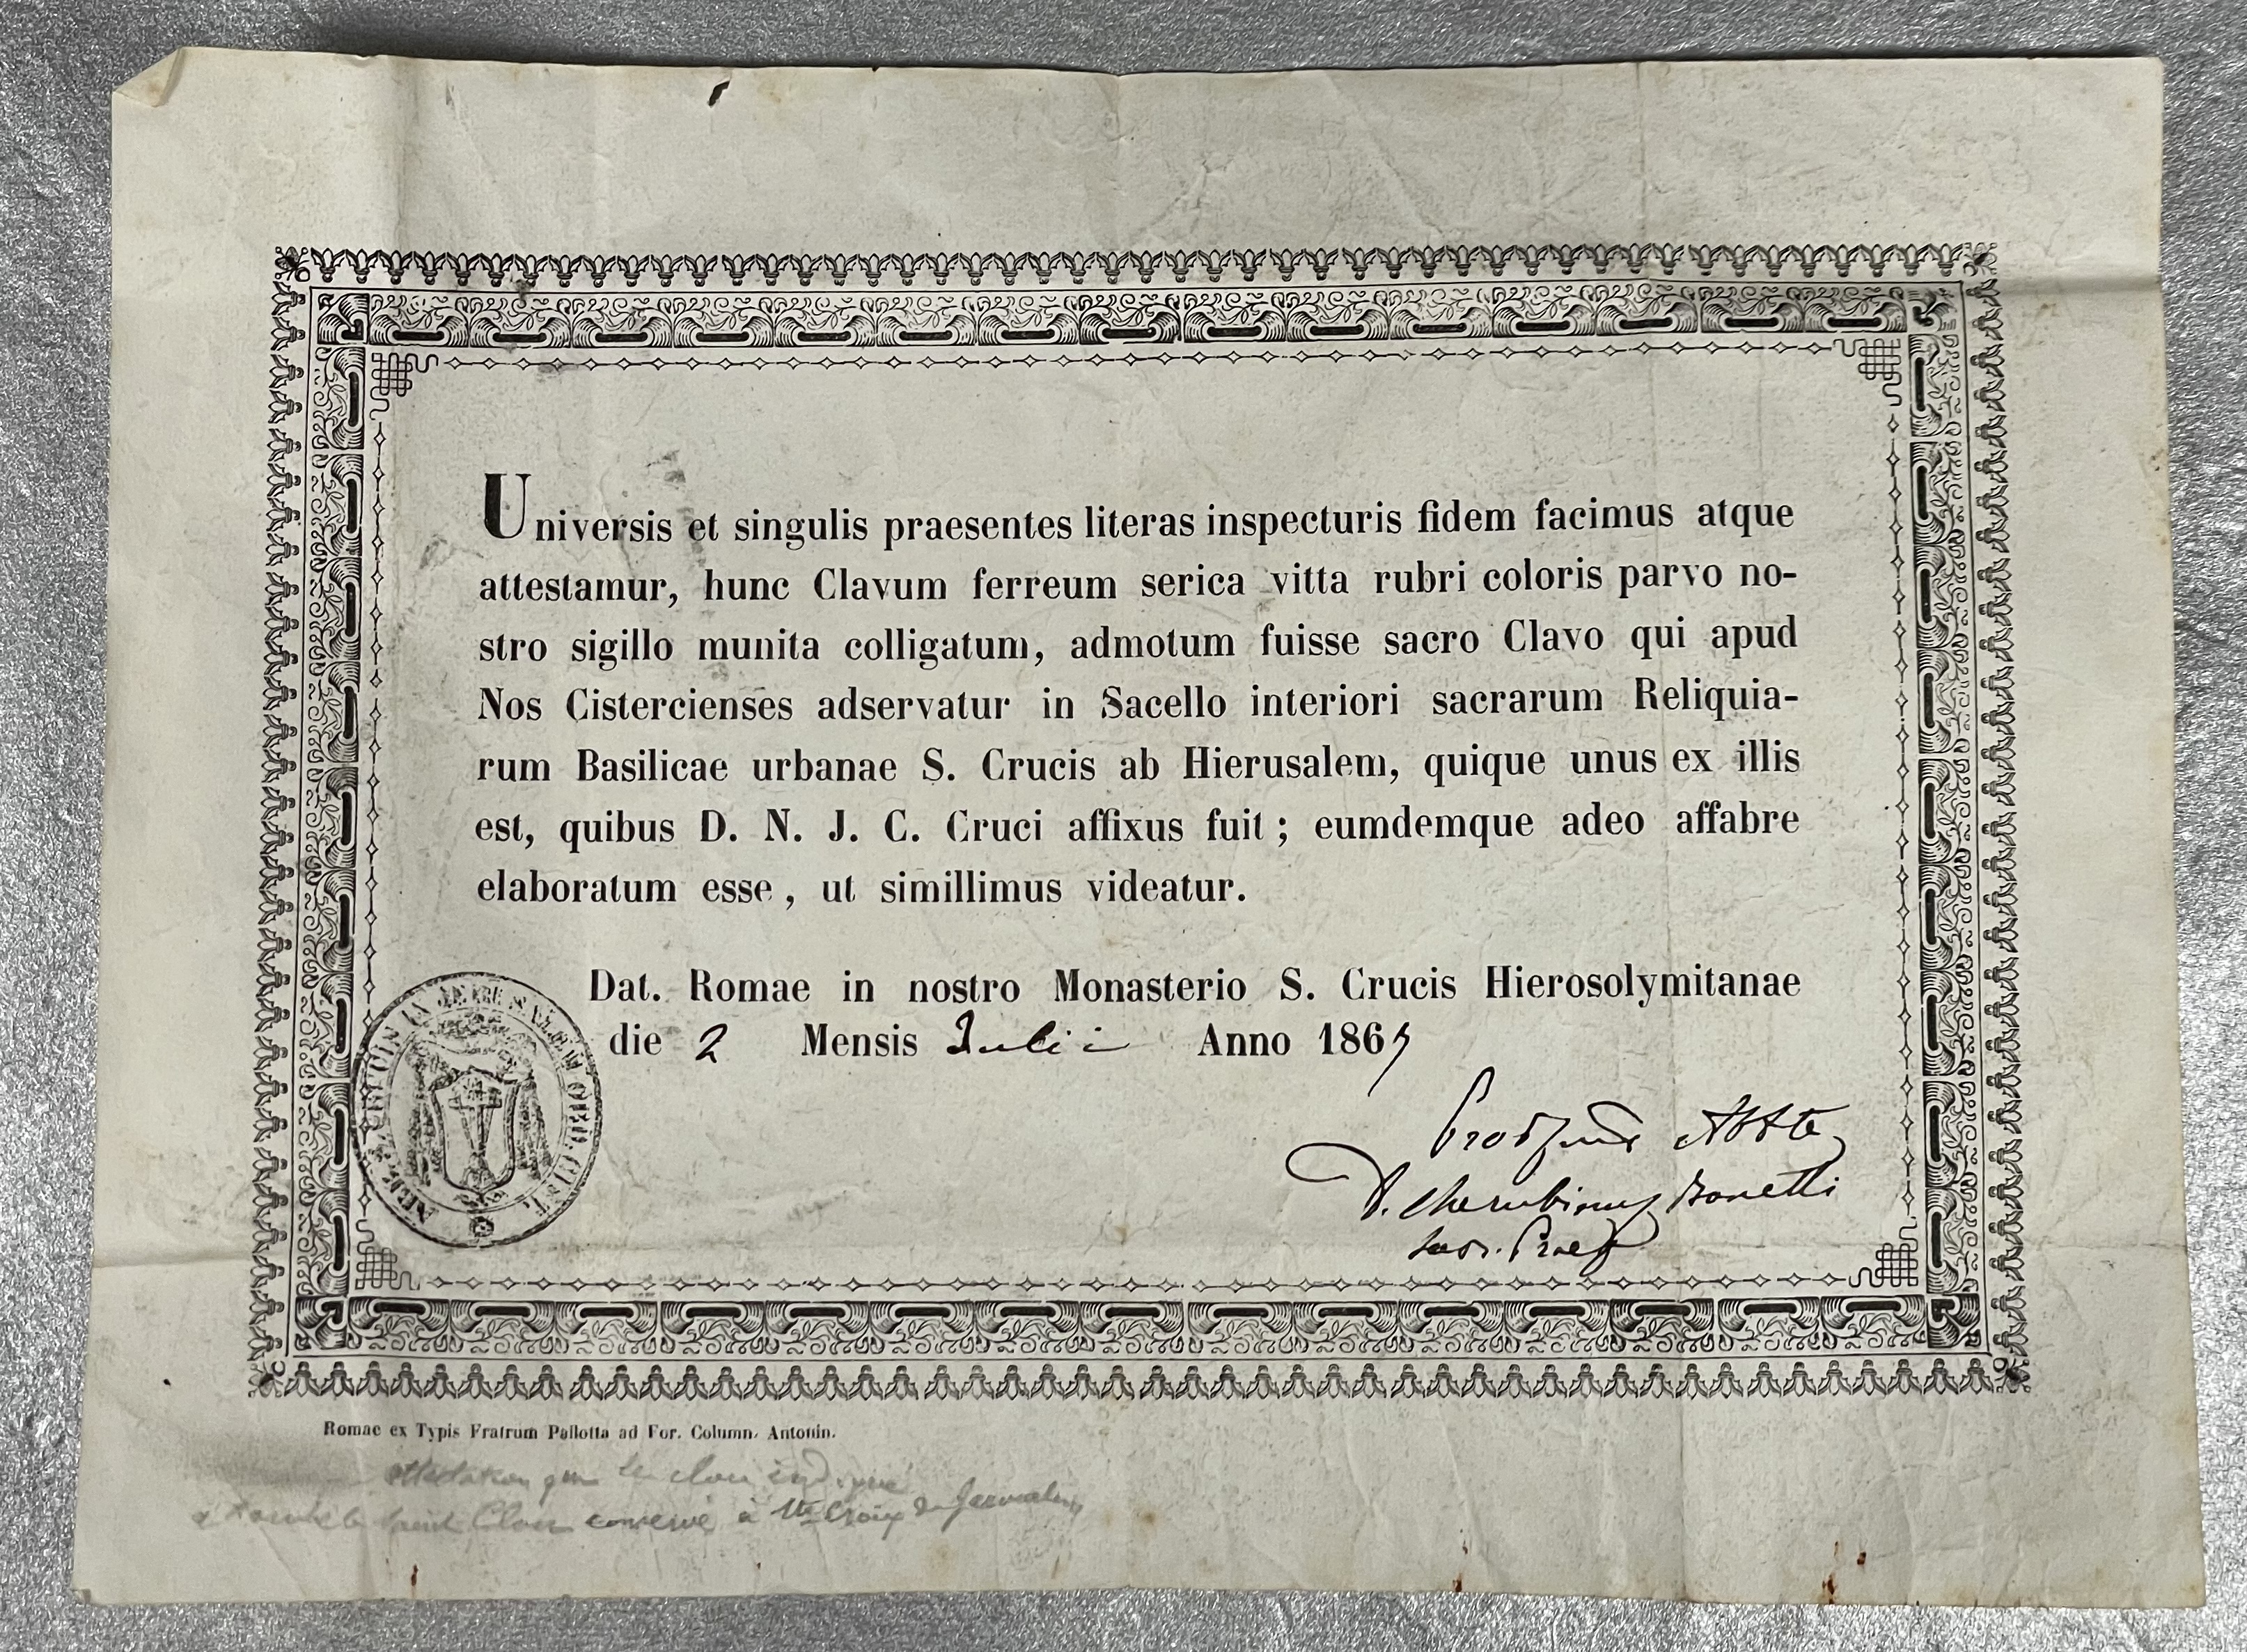 Universis et singulis praesentes literas inspecturis fidem facimus atque
attestamur, hunc Clavum ferreum serica vitta rubri coloris parvo no-
stro sigillo munita colligatum, admotum fuisse sacro Clavo qui apud
Nos Cistercienses adservatur in Sacello interiori sacrarum Reliquia-
rum Basilicae urbanae S. Crucis ab Hierusalem, quique unus ex illis
est, quibus D. N. J. C. Cruci affixus fuit ; eumdemque adeo affabre
elaboratum esse , ut simillimus videatur.
Dat. Romae in nostro Monasterio S. Crucis Hierosolymitanae
die 2 Mensis Julii Anno 186
CRUCIS IN JERUSALEM ORD. CIST.
Abbte
D. Cherubinus Bonetti
Praef
Romae ex Typis Fratrum Pallotta ad For. Column. Antonin.
attestation que le clou indiqué
a touché le Saint Clou conservé à Ste Croix de Jerusalem